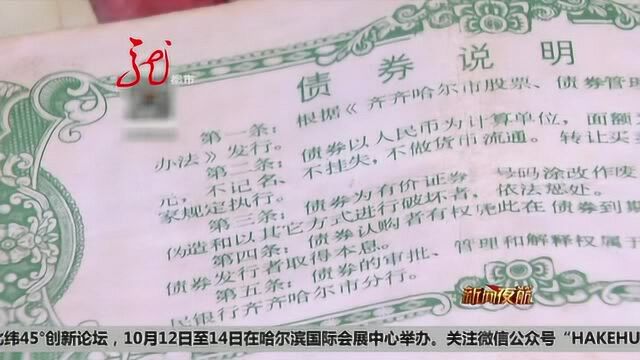 龙
都市
债券说明
第一条：根据《齐齐哈尔市股票、债券管理
办法》发行。
第二条：债券以人民币为计算单位，面额
元，不记名、不挂失，不做货币流通。转让买
家规定执行。
第三条：债券为有价证券 号码涂改作废
伪造和以其它方式进行破坏者，依法惩处。
第四条：债券认购者有权凭此在债券到期
债券发行者取得本息。
第五条：债券的审批、管理和解释权属于
民银行齐齐哈尔市分行。
新闻夜航
北纬45°创新论坛，10月12日至14日在哈尔滨国际会展中心举办。关注微信公众号“HAKEHU